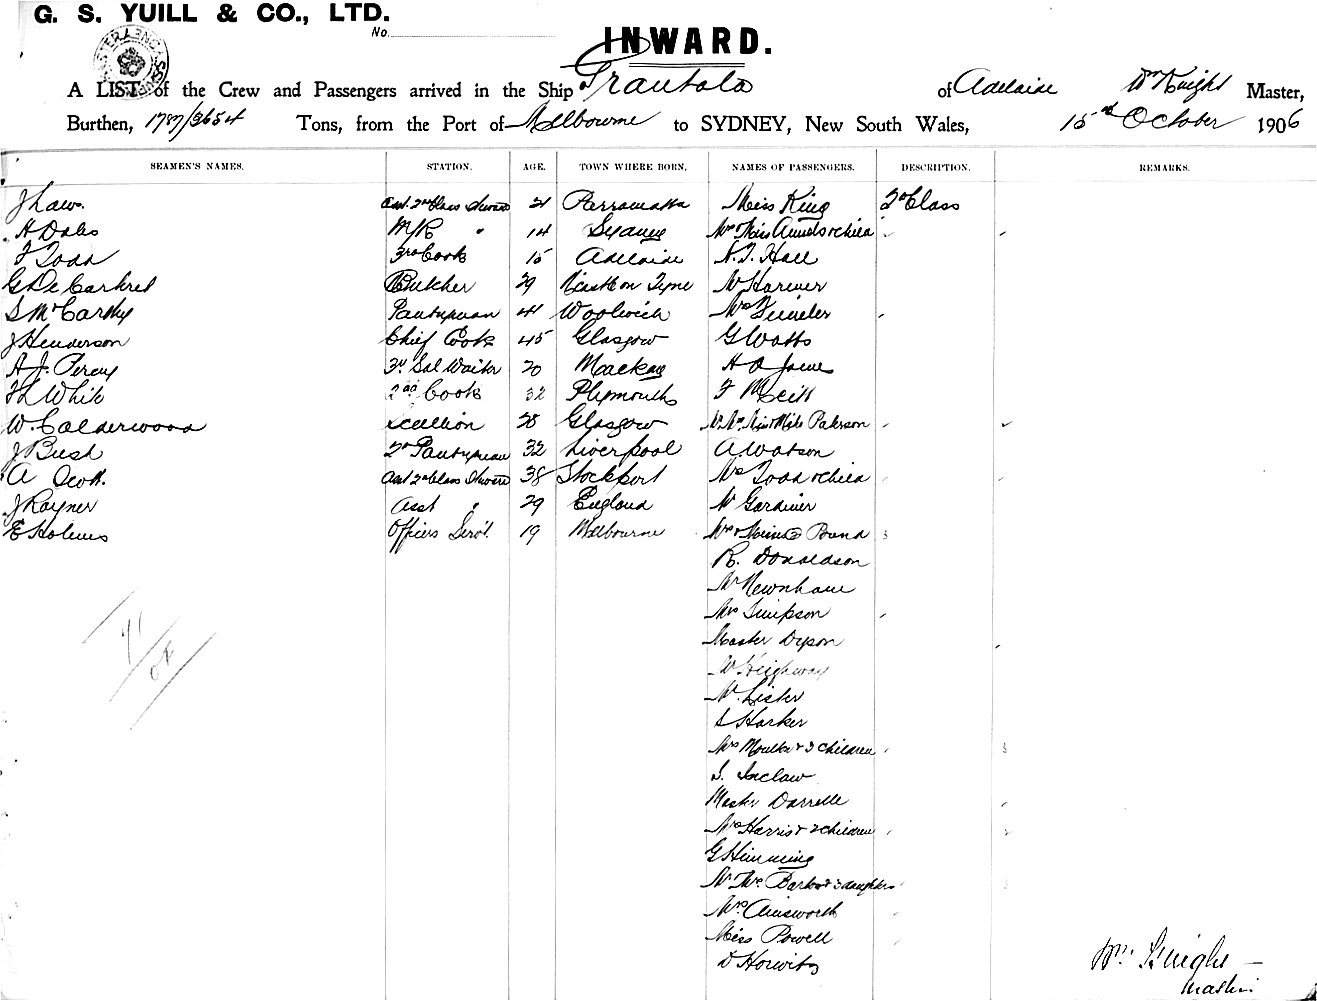 G. S. YUILL & CO., LTD.
No.
INWARD.
A LIST of the Crew and Passengers arrived in the Ship Grantala of Adelaide Wm Knight Master,
Burthen, 1787/3654 Tons, from the Port of Melbourne to SYDNEY, New South Wales, 15th October 1906
SEAMEN'S NAMES. STATION. AGE. TOWN WHERE BORN. NAMES OF PASSENGERS. DESCRIPTION. REMARKS.
J Law. Asst. 2nd Class Steward 21 Parramatta Miss King 2nd Class
A Dales M/R " 14 Sydney Mrs Miss & child
F Todd 3rd Cook 15 Adelaide N. T. Hall
G De Carteret Butcher 29 Newcastle on Tyne Mr
S McCarthy Pantryman 41 Woolwich Mrs
J Henderson Chief Cook 45 Glasgow G Watts
A. J. Percy 3rd Sal Waiter 20 Mackay H A
F L White 2nd Cook 32 Plymouth F
W. Calderwood Scullion 28 Glasgow Mr Mrs Miss & Miss Paterson
J Bush 2nd Pantryman 32 Liverpool A Watson
A Scott. Asst 2nd Class Steward 38 Stockport Mrs Todd & child
J Rayner Asst " 29 England Mr Gardiner
E Holmes Officers Servt. 19 Melbourne Mrs & Pound
R. Donaldson
Mr Newnham
Mrs Simpson
Master Dyson
W Heighway
Mr. Lister
S Harker
Mrs & 3 children
S. Inclaw
Master Darrelle
Mrs Harris & 2 children
G Himming
Mr Mrs Barlow & 3 daughters
Mrs. Ainsworth
Miss Powell
D Horwitz
41
04
Wm Knight
Master